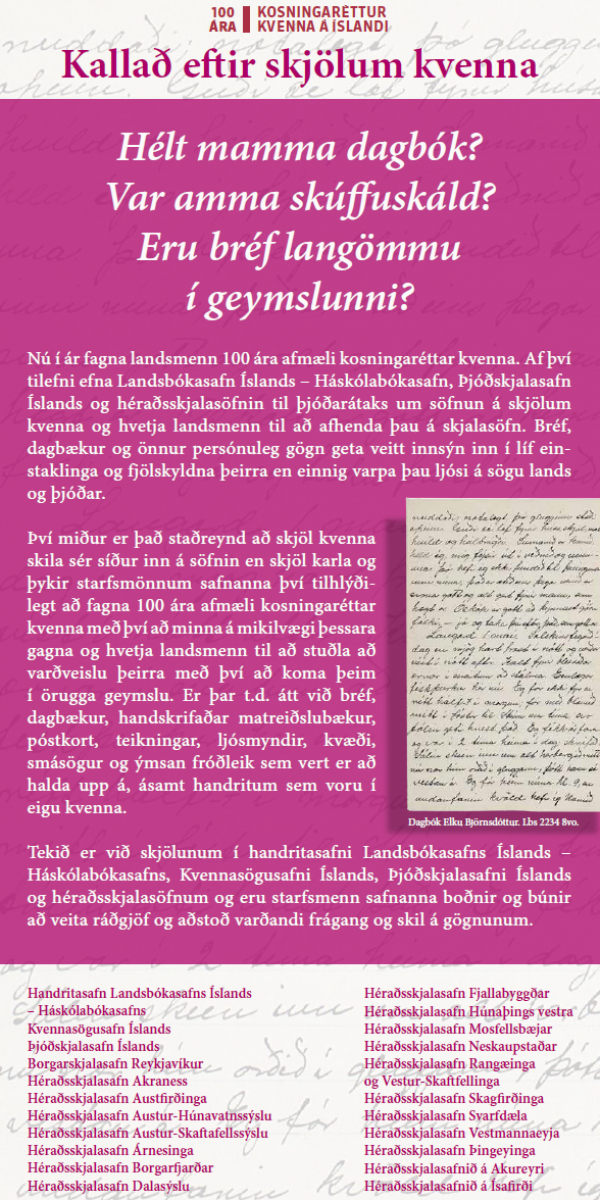 100 ÁRA
KOSNINGARÉTTUR
KVENNA Á ÍSLANDI
Kallað eftir skjölum kvenna
Hélt mamma dagbók?
Var amma skúffuskáld?
Eru bréf langömmu
í geymslunni?
Nú í ár fagna landsmenn 100 ára afmæli kosningaréttar kvenna. Af því
tilefni efna Landsbókasafn Íslands – Háskólabókasafn, Þjóðskjalasafn
Íslands og héraðsskjalasöfnin til þjóðarátaks um söfnun á skjölum
kvenna og hvetja landsmenn til að afhenda þau á skjalasöfn. Bréf,
dagbækur og önnur persónuleg gögn geta veitt innsýn inn í líf ein-
staklinga og fjölskyldna þeirra en einnig varpa þau ljósi á sögu lands
og þjóðar.
Því miður er það staðreynd að skjöl kvenna
skila sér síður inn á söfnin en skjöl karla og
þykir starfsmönnum safnanna því tilhlýði-
legt að fagna 100 ára afmæli kosningaréttar
kvenna með því að minna á mikilvægi þessara
gagna og hvetja landsmenn til að stuðla að
varðveislu þeirra með því að koma þeim
í örugga geymslu. Er þar t.d. átt við bréf,
dagbækur, handskrifaðar matreiðslubækur,
póstkort, teikningar, ljósmyndir, kvæði,
smásögur og ýmsan fróðleik sem vert er að
halda upp á, ásamt handritum sem voru í
eigu kvenna.
Dagbók Elku Björnsdóttur. Lbs 2234 8vo.
Tekið er við skjölunum í handritasafni Landsbókasafns Íslands –
Háskólabókasafns, Kvennasögusafni Íslands, Þjóðskjalasafni Íslands
og héraðsskjalasöfnum og eru starfsmenn safnanna boðnir og búnir
að veita ráðgjöf og aðstoð varðandi frágang og skil á gögnunum.
Handritasafn Landsbókasafns Íslands
– Háskólabókasafns
Kvennasögusafn Íslands
Þjóðskjalasafn Íslands
Borgarskjalasafn Reykjavíkur
Héraðsskjalasafn Akraness
Héraðsskjalasafn Austfirðinga
Héraðsskjalasafn Austur-Húnavatnssýslu
Héraðsskjalasafn Austur-Skaftafellssýslu
Héraðsskjalasafn Árnesinga
Héraðsskjalasafn Borgarfjarðar
Héraðsskjalasafn Dalasýslu
Héraðsskjalasafn Fjallabyggðar
Héraðsskjalasafn Húnaþings vestra
Héraðsskjalasafn Mosfellsbæjar
Héraðsskjalasafn Neskaupstaðar
Héraðsskjalasafn Rangæinga
og Vestur-Skaftfellinga
Héraðsskjalasafn Skagfirðinga
Héraðsskjalasafn Svarfdæla
Héraðsskjalasafn Vestmannaeyja
Héraðsskjalasafn Þingeyinga
Héraðsskjalasafnið á Akureyri
Héraðsskjalasafnið á Ísafirði